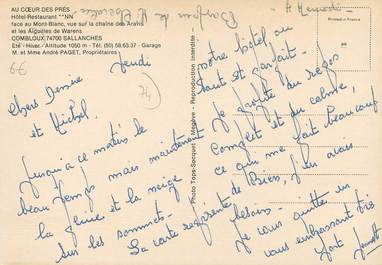 AU CŒUR DES PRÉS
Hôtel-Restaurant **NN
face au Mont-Blanc, vue sur la chaîne des Aravis
et les Aiguilles de Warens
COMBLOUX 74700 SALLANCHES
Eté - Hiver - Altitude 1050 m - Tél. (50) 58.63.37 - Garage
M. et Mme André PAGET, Propriétaires
Jeudi
Chers
et Michel.
Jusqu'à ce matin le
beau temps mais maintenant
la pluie et la neige
sur les sommets.
La carte représente
notre hôtel où
tout est parfait.
Je profite du repos
complet et du calme,
ce qui me fait beaucoup
de bien, j'en avais
besoin.
Je vous quitte en
vous embrassant très
fort
Photo Tops-Socquet - Megève - Reproduction interdite -
Printed in France